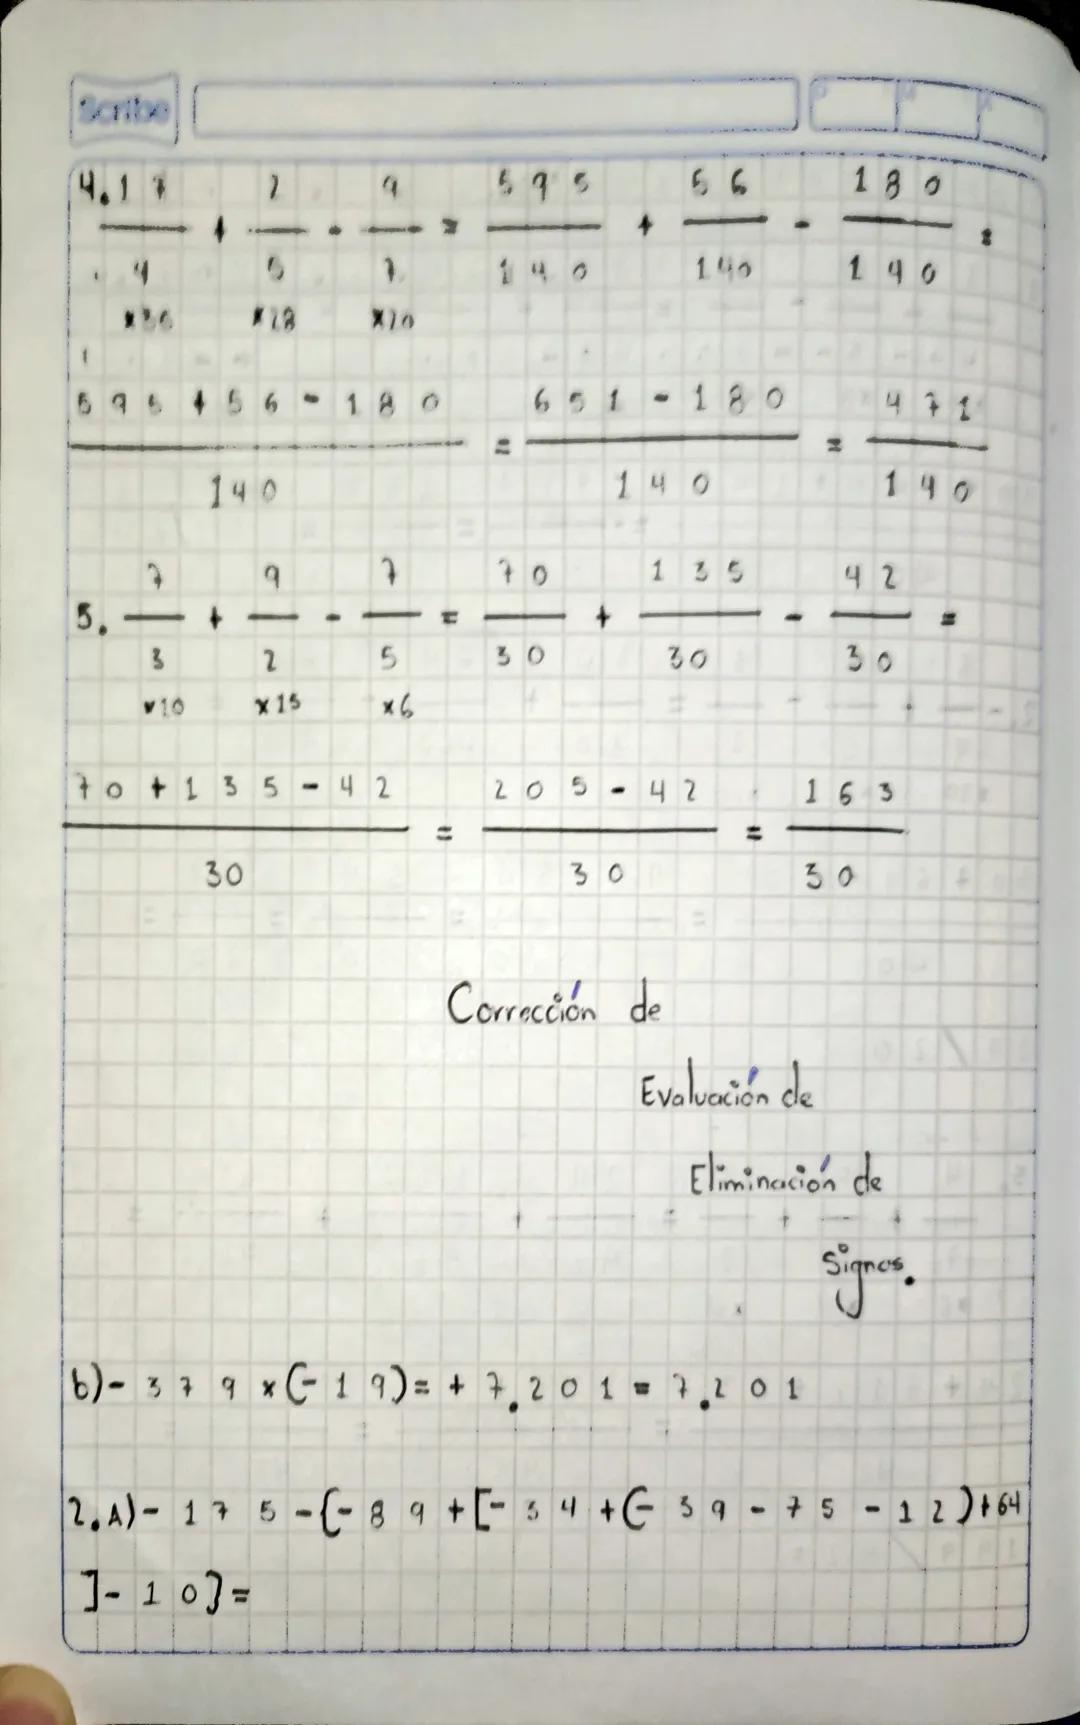 Scribe
4. 17/4 + 2/5 - 9/7 = 595/140 + 56/140 - 180/140 =
×28 ×20
595 + 56 - 180/140 = 651 - 180/140 = 471/140
5. 7/3 + 9/2 - 7/5 = 70/30 + 135/30 - 42/30 =
×10 ×15 ×6
70 + 135 - 42/30 = 205 - 42/30 = 163/30
Corrección de
Evaluación de
Eliminación de
Signos.
b) - 379 × (-19) = + 7.201 = 7.201
2. A) - 175 - {- 89 + [- 34 + (- 39 - 75 - 12) + 64
] - 10} =